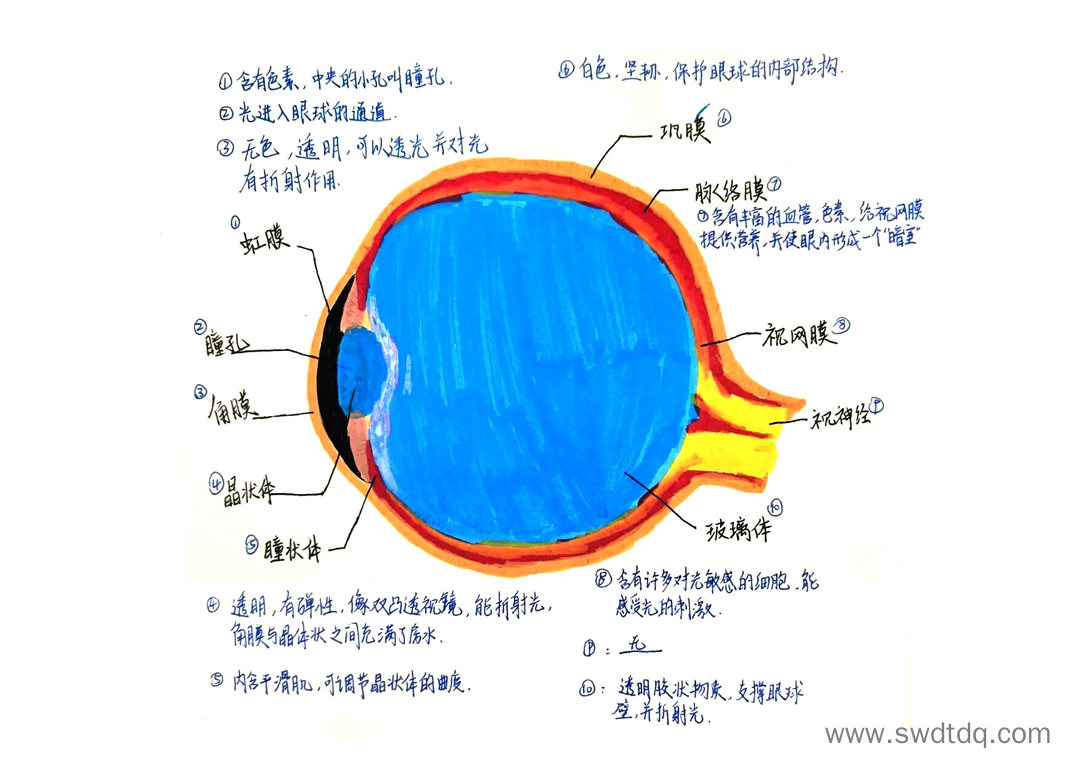 ①含有色素，中央的小孔叫瞳孔.
②光进入眼球的通道.
③无色，透明，可以透光并对光
有折射作用.
⑥白色，坚韧，保护眼球的内部结构.
巩膜⑥
脉络膜⑦
⑦含有丰富的血管，色素，给视网膜
提供营养，并使眼内形成一个“暗室”
①
虹膜
②
瞳孔
③
角膜
④晶状体
⑤瞳状体
视网膜⑧
视神经⑨
玻璃体⑩
④透明，有弹性，像双凸透视镜，能折射光，
角膜与晶体状之间充满了房水.
⑤内含平滑肌，可调节晶状体的曲度.
⑧含有许多对光敏感的细胞，能
感受光的刺激.
⑨：无
⑩：透明胶状物质，支撑眼球
壁，并折射光.
www.swdtdq.com